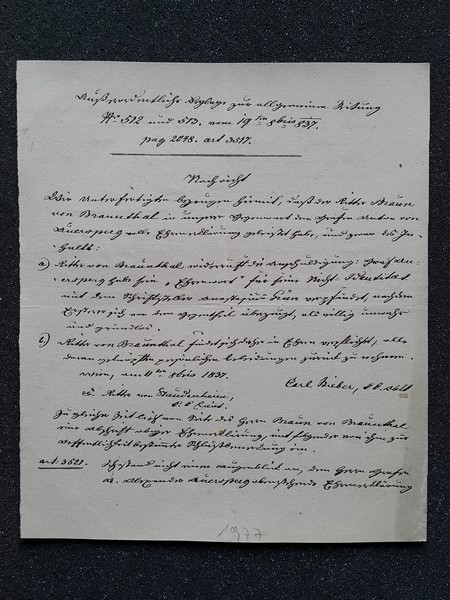 Außerordentliche Beylage zur allgemeinen Zeitung
No 512 und 513. vom 19ten 8bris 837.
pag 2048. art 3517.
Nachricht
Wir Unterfertigte bezeugen hiemit, daß der Ritter Braun
von Braunthal in unserer Gegenwart dem Grafen Anton von
Auersperg volle Ehrenerklärung geleistet habe, und zwar des In-
halts:
a) Ritter von Braunthal widerruft die Anschuldigung: Graf Au-
ersperg habe sein „Ehrenwort" für seine Nicht-Identität
mit dem Schriftsteller Anastasius Grün verpfändet, nachdem
Ersterer sich von dem Gegentheil überzeugt, als völlig unwahr
und grundlos.
b) Ritter von Braunthal findet sich daher in Ehren verpflichtet, alle
daran geknüpften persönlichen Beleidigungen zurück zu nehmen.
Wien, am 11ten 8bris 1837.
Carl Bieber,
F. Ritter von Staudenheim,
Zu gleicher Zeit lief von Seite des Herrn Braun von Braunthal
eine Abschrift obiger Ehrenerklärung, mit folgender von ihm zur
Öffentlichkeit bestimmten Schlußbemerkung ein.
art: 3521. Ich stand nicht einen Augenblick an, dem Herrn Grafen
A. Alexander Auersperg obenstehende Ehrenerklärung
1977